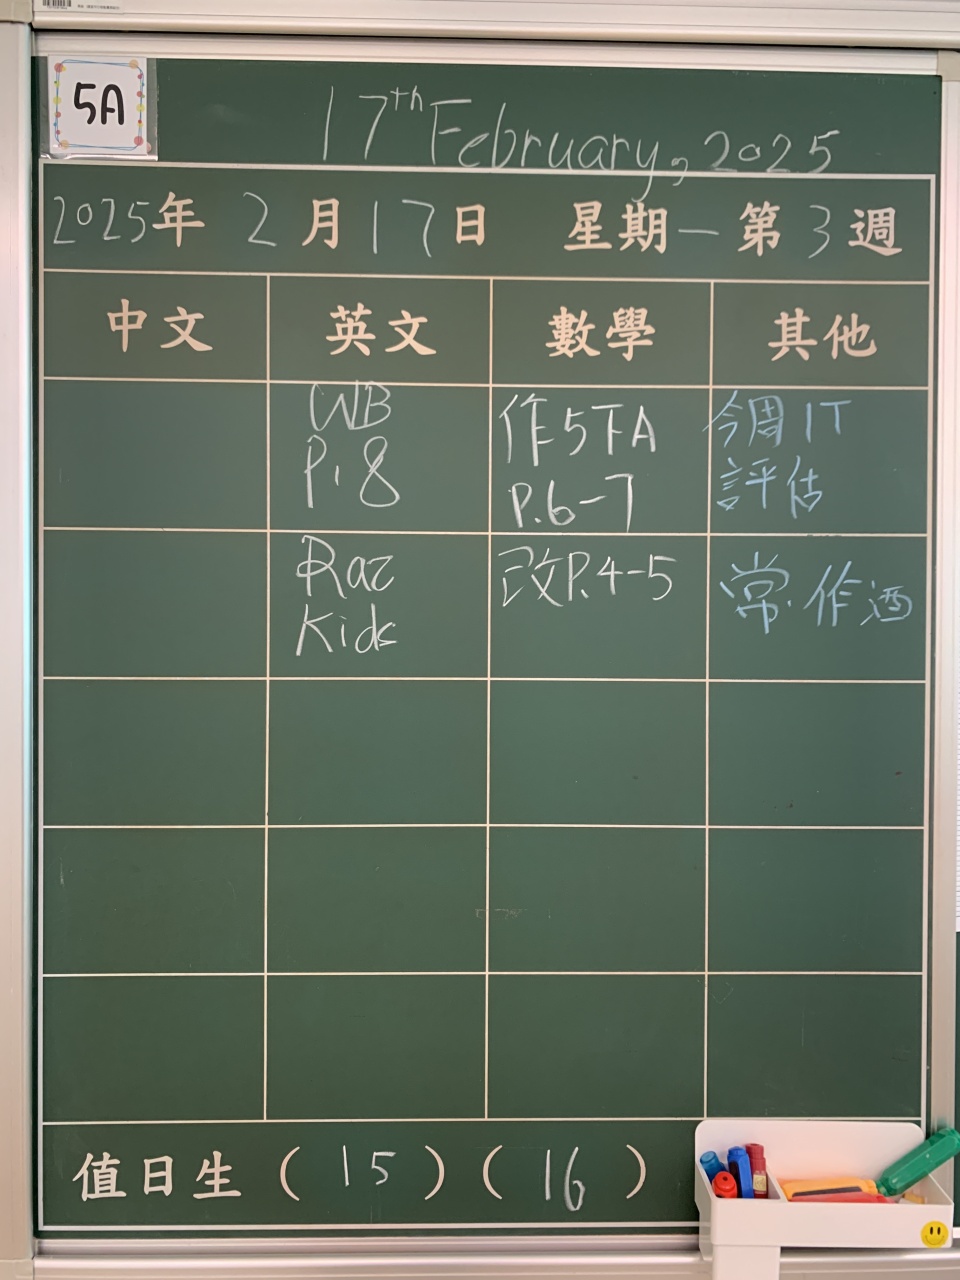 5A
17th February, 2025
2025年 2月17日 星期一 第3週
中文 英文 數學 其他
WB
P.8
作5下A
P.6-7
今周IT
評估
Raz
Kids
改P.4-5
常.作
值日生 (15) (16)